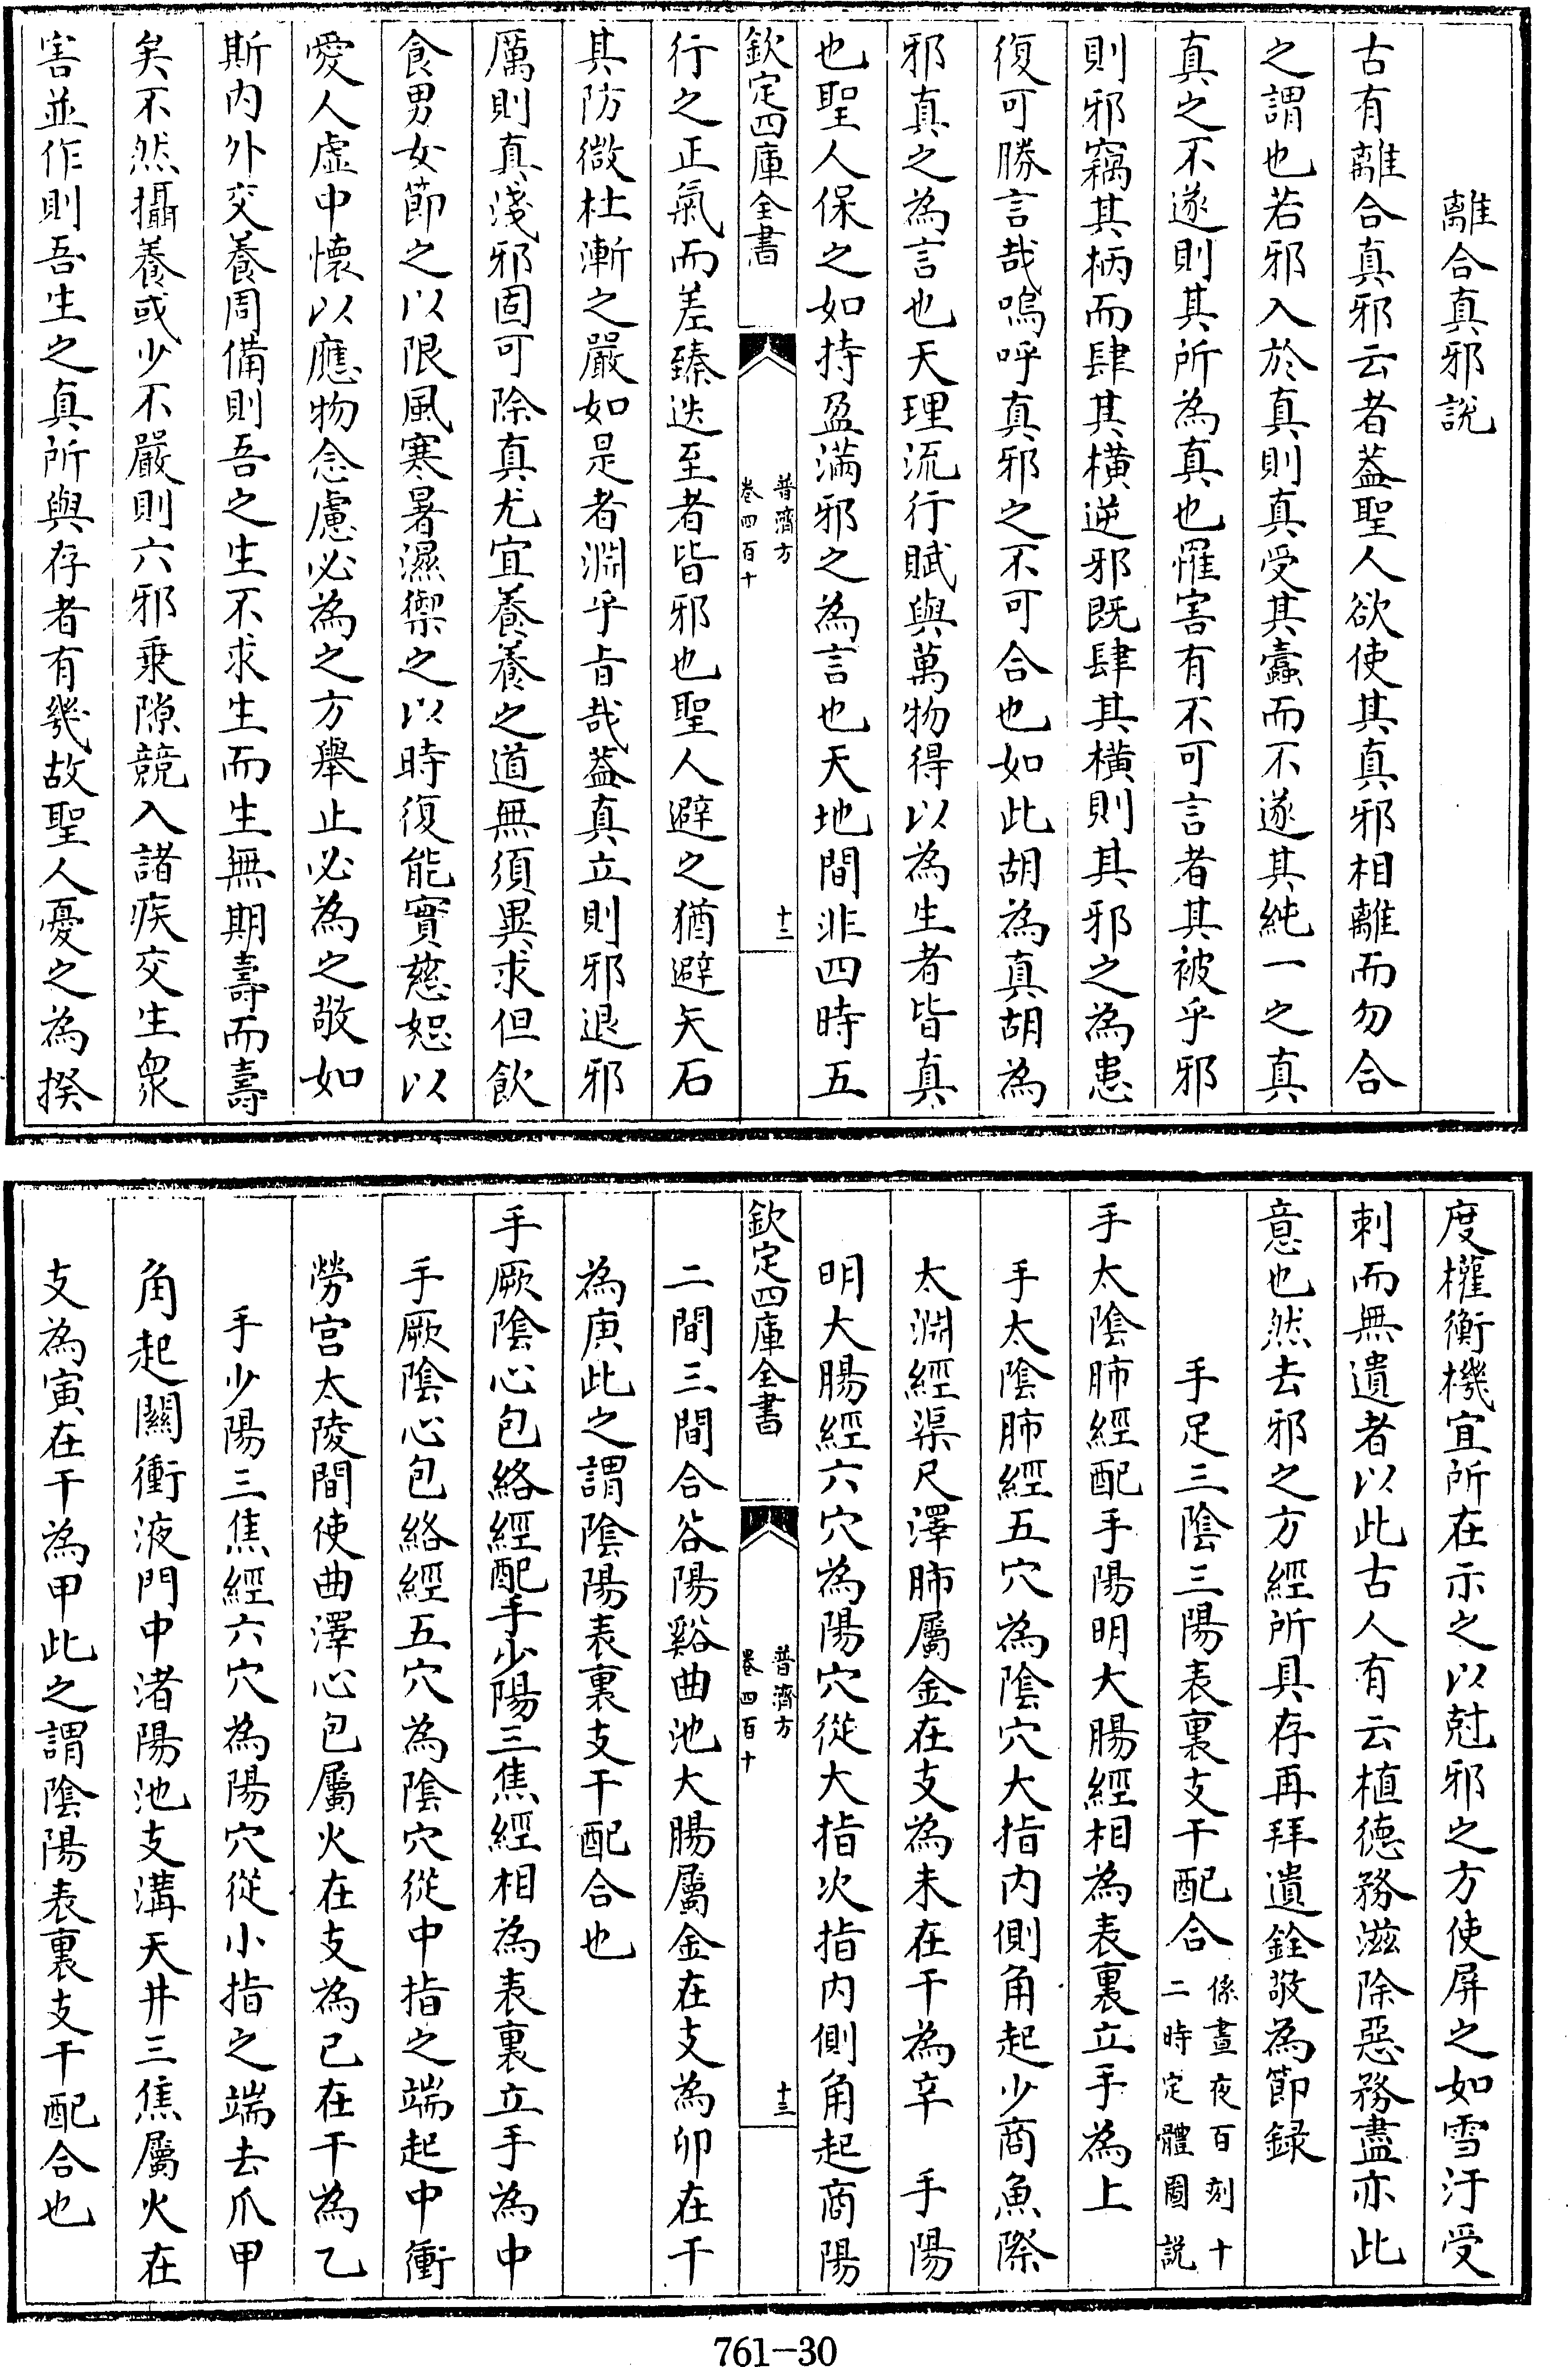 離合真邪說
古有離合真邪云者葢聖人欲使其真邪相離而勿合
之謂也若邪入於真則真受其蠹而不遂其純一之真
真之不遂則其所為真也罹害有不可言者其被乎邪
則邪竊其柄而肆其橫逆邪既肆其橫則其邪之為患
復可勝言哉嗚呼真邪之不可合也如此胡為真胡為
邪真之為言也天理流行賦與萬物得以為生者皆真
也聖人保之如持盈滿邪之為言也天地間非四時五
欽定四庫全書
普濟方
卷四百十
十二
行之正氣而差臻迭至者皆邪也聖人避之猶避矢石
其防微杜漸之嚴如是者淵乎㫖哉葢真立則邪退邪
厲則真淺邪固可除真尤宜養養之道無須異求但飲
食男女節之以限風寒暑濕禦之以時復能實慈恕以
愛人虛中懷以應物念慮必為之方舉止必為之敬如
斯内外交養周備則吾之生不求生而生無期壽而壽
矣不然攝養或少不嚴則六邪乘隙競入諸疾交生衆
害並作則吾生之真所與存者有幾故聖人憂之為揆
度權衡機宜所在示之以尅邪之方使屏之如雪汙受
刺而無遺者以此古人有云植德務滋除惡務盡亦此
意也然去邪之方經所具存再拜遺銓敬為節録
手足三陰三陽表裏支干配合
係晝夜百刻十
二時定體圖説
手太陰肺經配手陽明大腸經相為表裏立手為上
手太陰肺經五穴為陰穴大指内側角起少商魚際
太淵經渠尺澤肺屬金在支為未在干為辛　手陽
明大腸經六穴為陽穴從大指次指内側角起商陽
欽定四庫全書
普濟方
卷四百十
十三
二間三間合谷陽谿曲池大腸屬金在支為卯在干
為庚此之謂陰陽表裏支干配合也
手厥陰心包絡經配手少陽三焦經相為表裏立手為中
手厥陰心包絡經五穴為陰穴從中指之端起中衝
勞宫太陵間使曲澤心包屬火在支為已在干為乙
手少陽三焦經六穴為陽穴從小指之端去爪甲
角起關衝液門中渚陽池支溝天井三焦屬火在
支為寅在干為甲此之謂陰陽表裏支干配合也
761-30